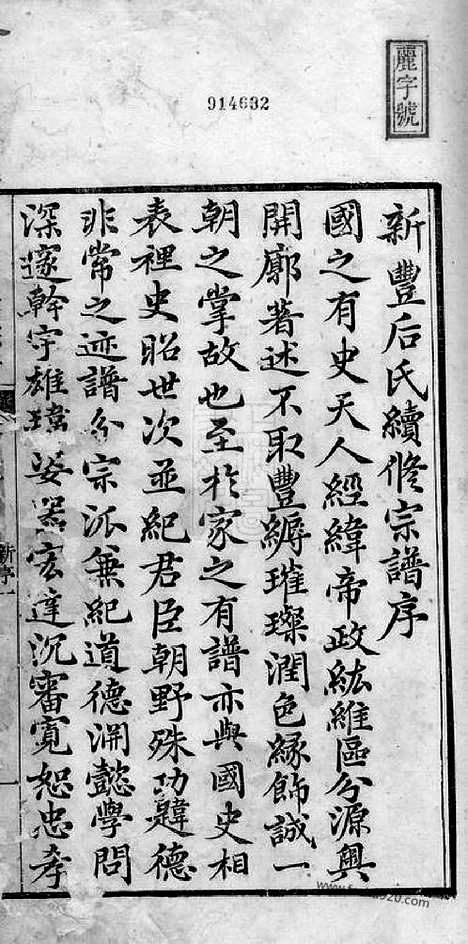 麗字號
914632
新豐后氏續修宗譜序
國之有史天人經緯帝政紘維區分源輿
開廓著述不取豐縟璀璨潤色緣飾誠一
朝之掌故也至於家之有譜亦與國史相
表裡史昭世次並紀君臣朝野殊功韙德
非常之迹譜分宗派兼紀道德淵懿學問
深邃幹宇雄瑋姿器宏達沉審寬恕忠孝
新序一